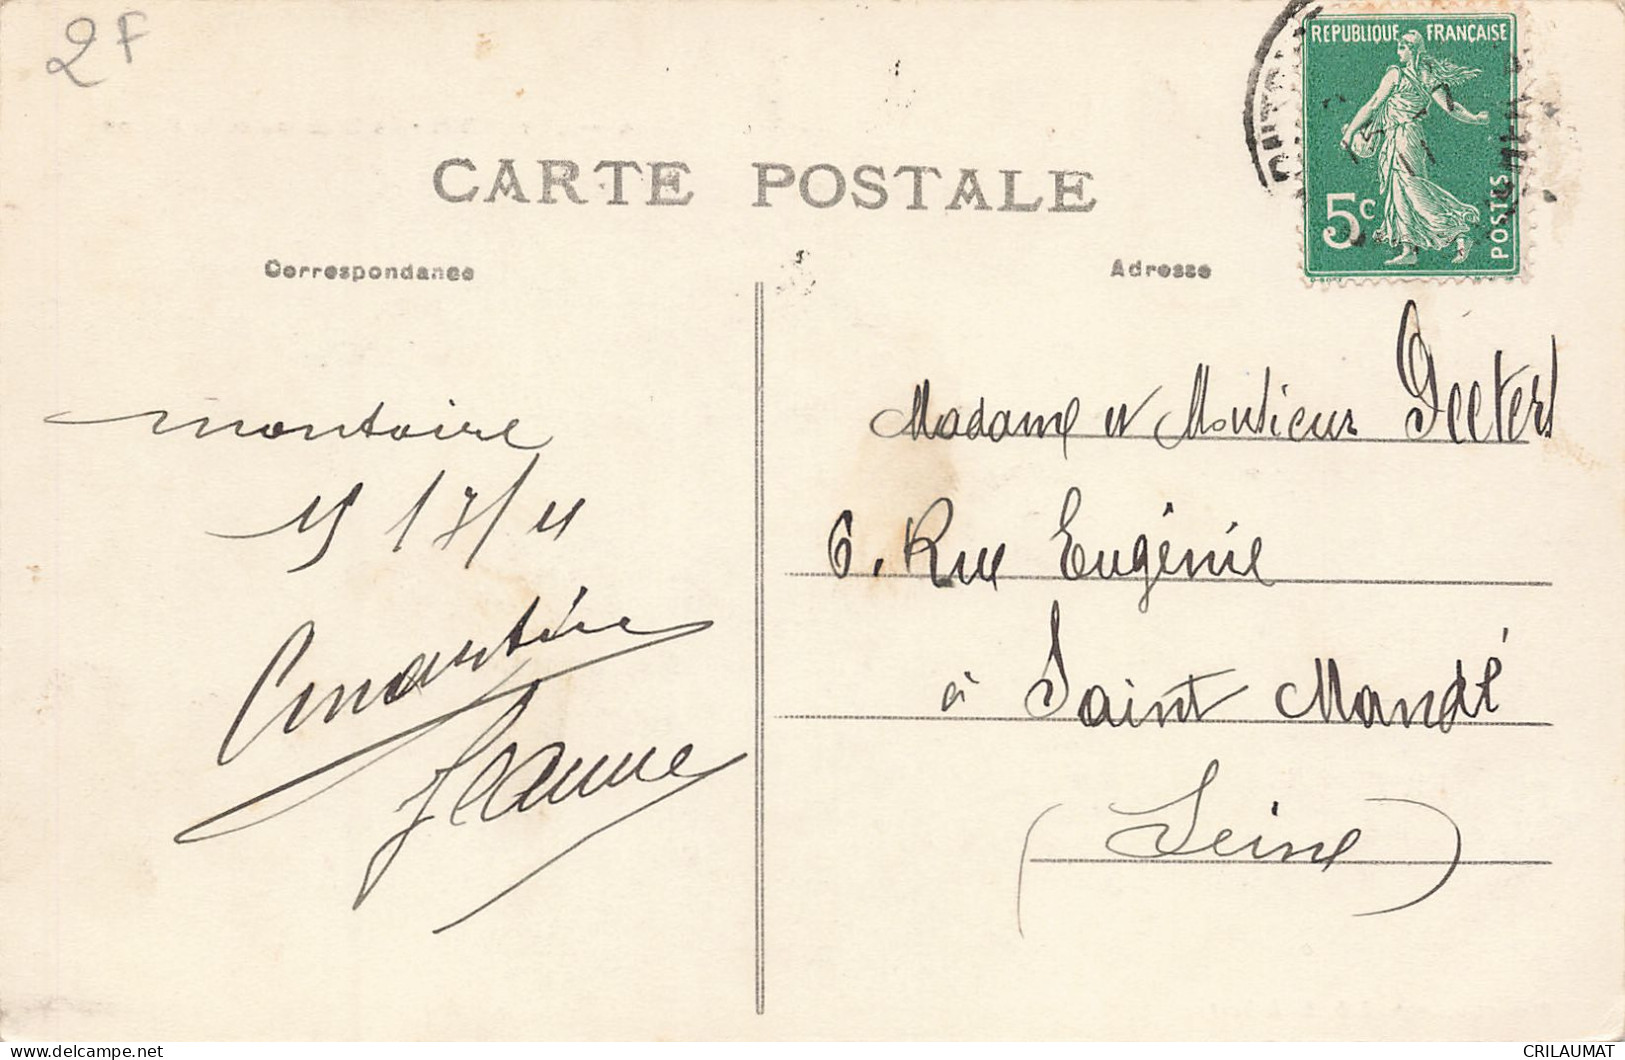 2F
REPUBLIQUE FRANÇAISE
5c
POSTES
CARTE POSTALE
Correspondance
Adresse
montoire
15/7/11
Jeanne
Madame et Monsieur Peeters
6. Rue Eugénie
à Saint Mandé
(Seine)
CRILAUMAT